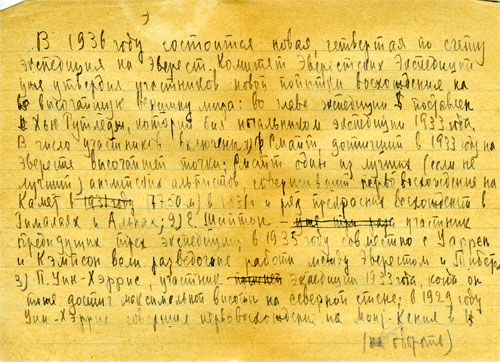 В 1936 году состоится новая, четвертая по счету
экспедиция на Эверест. Комитет Эверестских Экспедиций
уже утвердил участников новой попытки восхождения на
высочайшую вершину мира: во главе экспедиции поставлен
Хью Рутледж, который был начальником экспедиции 1933 года.
В число участников включены: 1) Ф. Смайт, достигший в 1933 году на
Эвересте высочайшей точки; Смайт один из лучших (если не
лучший) английских альпинистов, совершивший первовосхождение на
Камет в 1931 году (7750 м) и ряд прекрасных восхождений в
Гималаях и Альпах; 2) Е. Шиптон – участник
предыдущих трех экспедиций; в 1935 году совместно с Уоррен
и Кэмпсон вели разведочные работы между Эверестом и
3) П. Уин-Хэррис, участник экспедиции 1933 года, когда он
тоже достиг максимальной высоты на северной стене; в 1929 году
Уин-Хэррис совершил первовосхождение на Монт-Кения и
(на обороте)